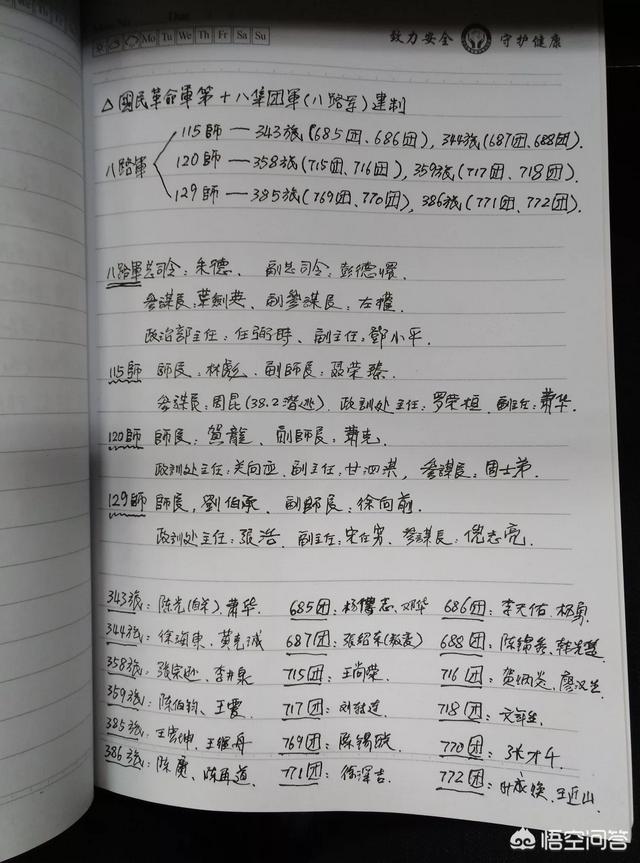 Mo Tu We Th Fr Sa Su
致力安全 守护健康
△國民革命軍第十八集团軍(八路军)建制
115師—343旅(685团、686团), 344旅(687团、688团).
八路軍 120師—358旅(715团、716团), 359旅(717团、718团).
129師—385旅(769团、770团), 386旅(771团、772团).
八路軍总司令:朱德、 副总司令:彭德懷、
参謀長:葉劍英、副参謀長:左權、
政治部主任:任弼時、副主任:鄧小平.
115師 師長:林彪、副師長:聶荣臻、
参謀長:周昆(38.2潜逃)、政训处主任:罗荣桓、副主任:萧华.
120師 師長:賀龍、副師長:萧克、
政训处主任:关向应、副主任:甘泗淇、参謀長:周士弟.
129師 師長,劉伯承、副師長:徐向前、
政训处主任:張浩、副主任:宋任穷、参謀長:倪志亮.
343旅:陈光、萧华. 685团:杨 志、邓华 686团:李天佑、杨勇.
344旅:徐海東、黄克诚 687团:張绍东(叛变) 688团:陈锦秀、韩先楚.
358旅:張宗逊、李井泉 715团:王尚荣. 716团:賀炳炎、廖汉生
359旅:陈伯钧、王震. 717团:刘转连 718团:文年生
385旅:王宏坤、王维舟 769团:陈锡联 770团:张才千.
386旅:陈赓、陈再道 771团:徐深吉. 772团:叶成焕、王近山.
悟空问答